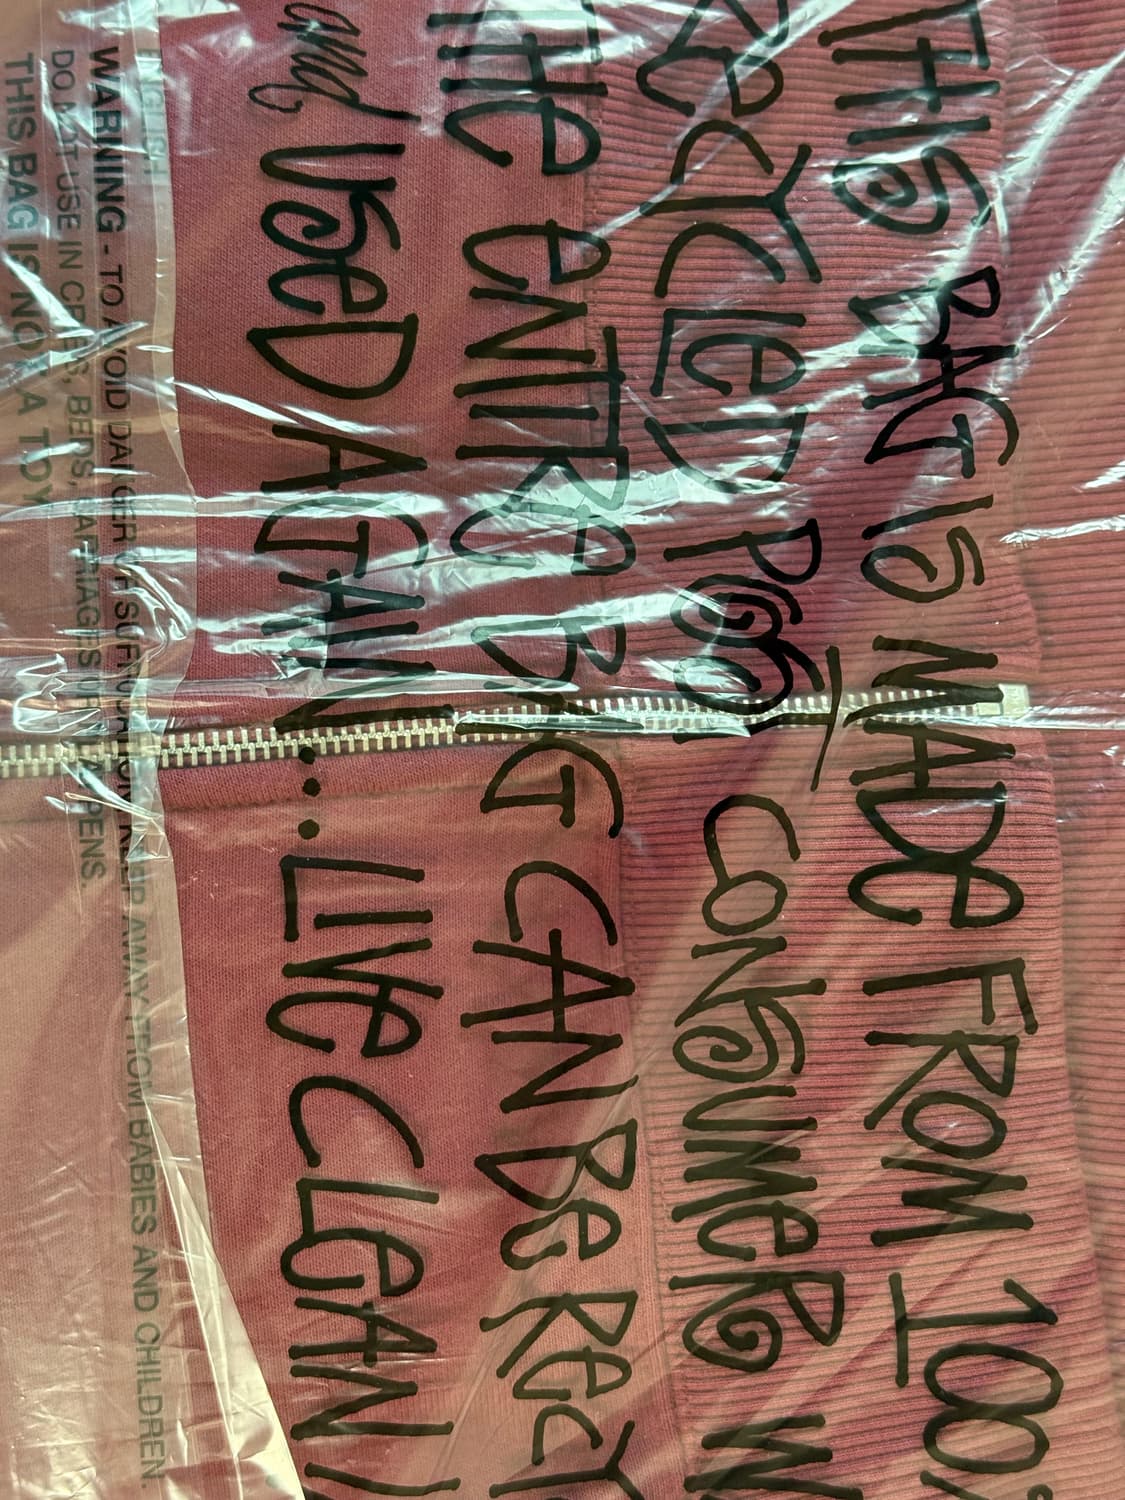 THIS BAG IS MADE FROM 100%
RECYCLED POST CONSUMER W
THE ENTIRE BAG CAN BE RECY
and USED AGAIN... LIVE CLEAN)
ENGLISH
WARNING - TO AVOID DANGER OF SUFFOCATION KEEP AWAY FROM BABIES AND CHILDREN.
DO NOT USE IN CRIBS, BEDS, CARRIAGES OR PLAYPENS.
THIS BAG IS NOT A TOY